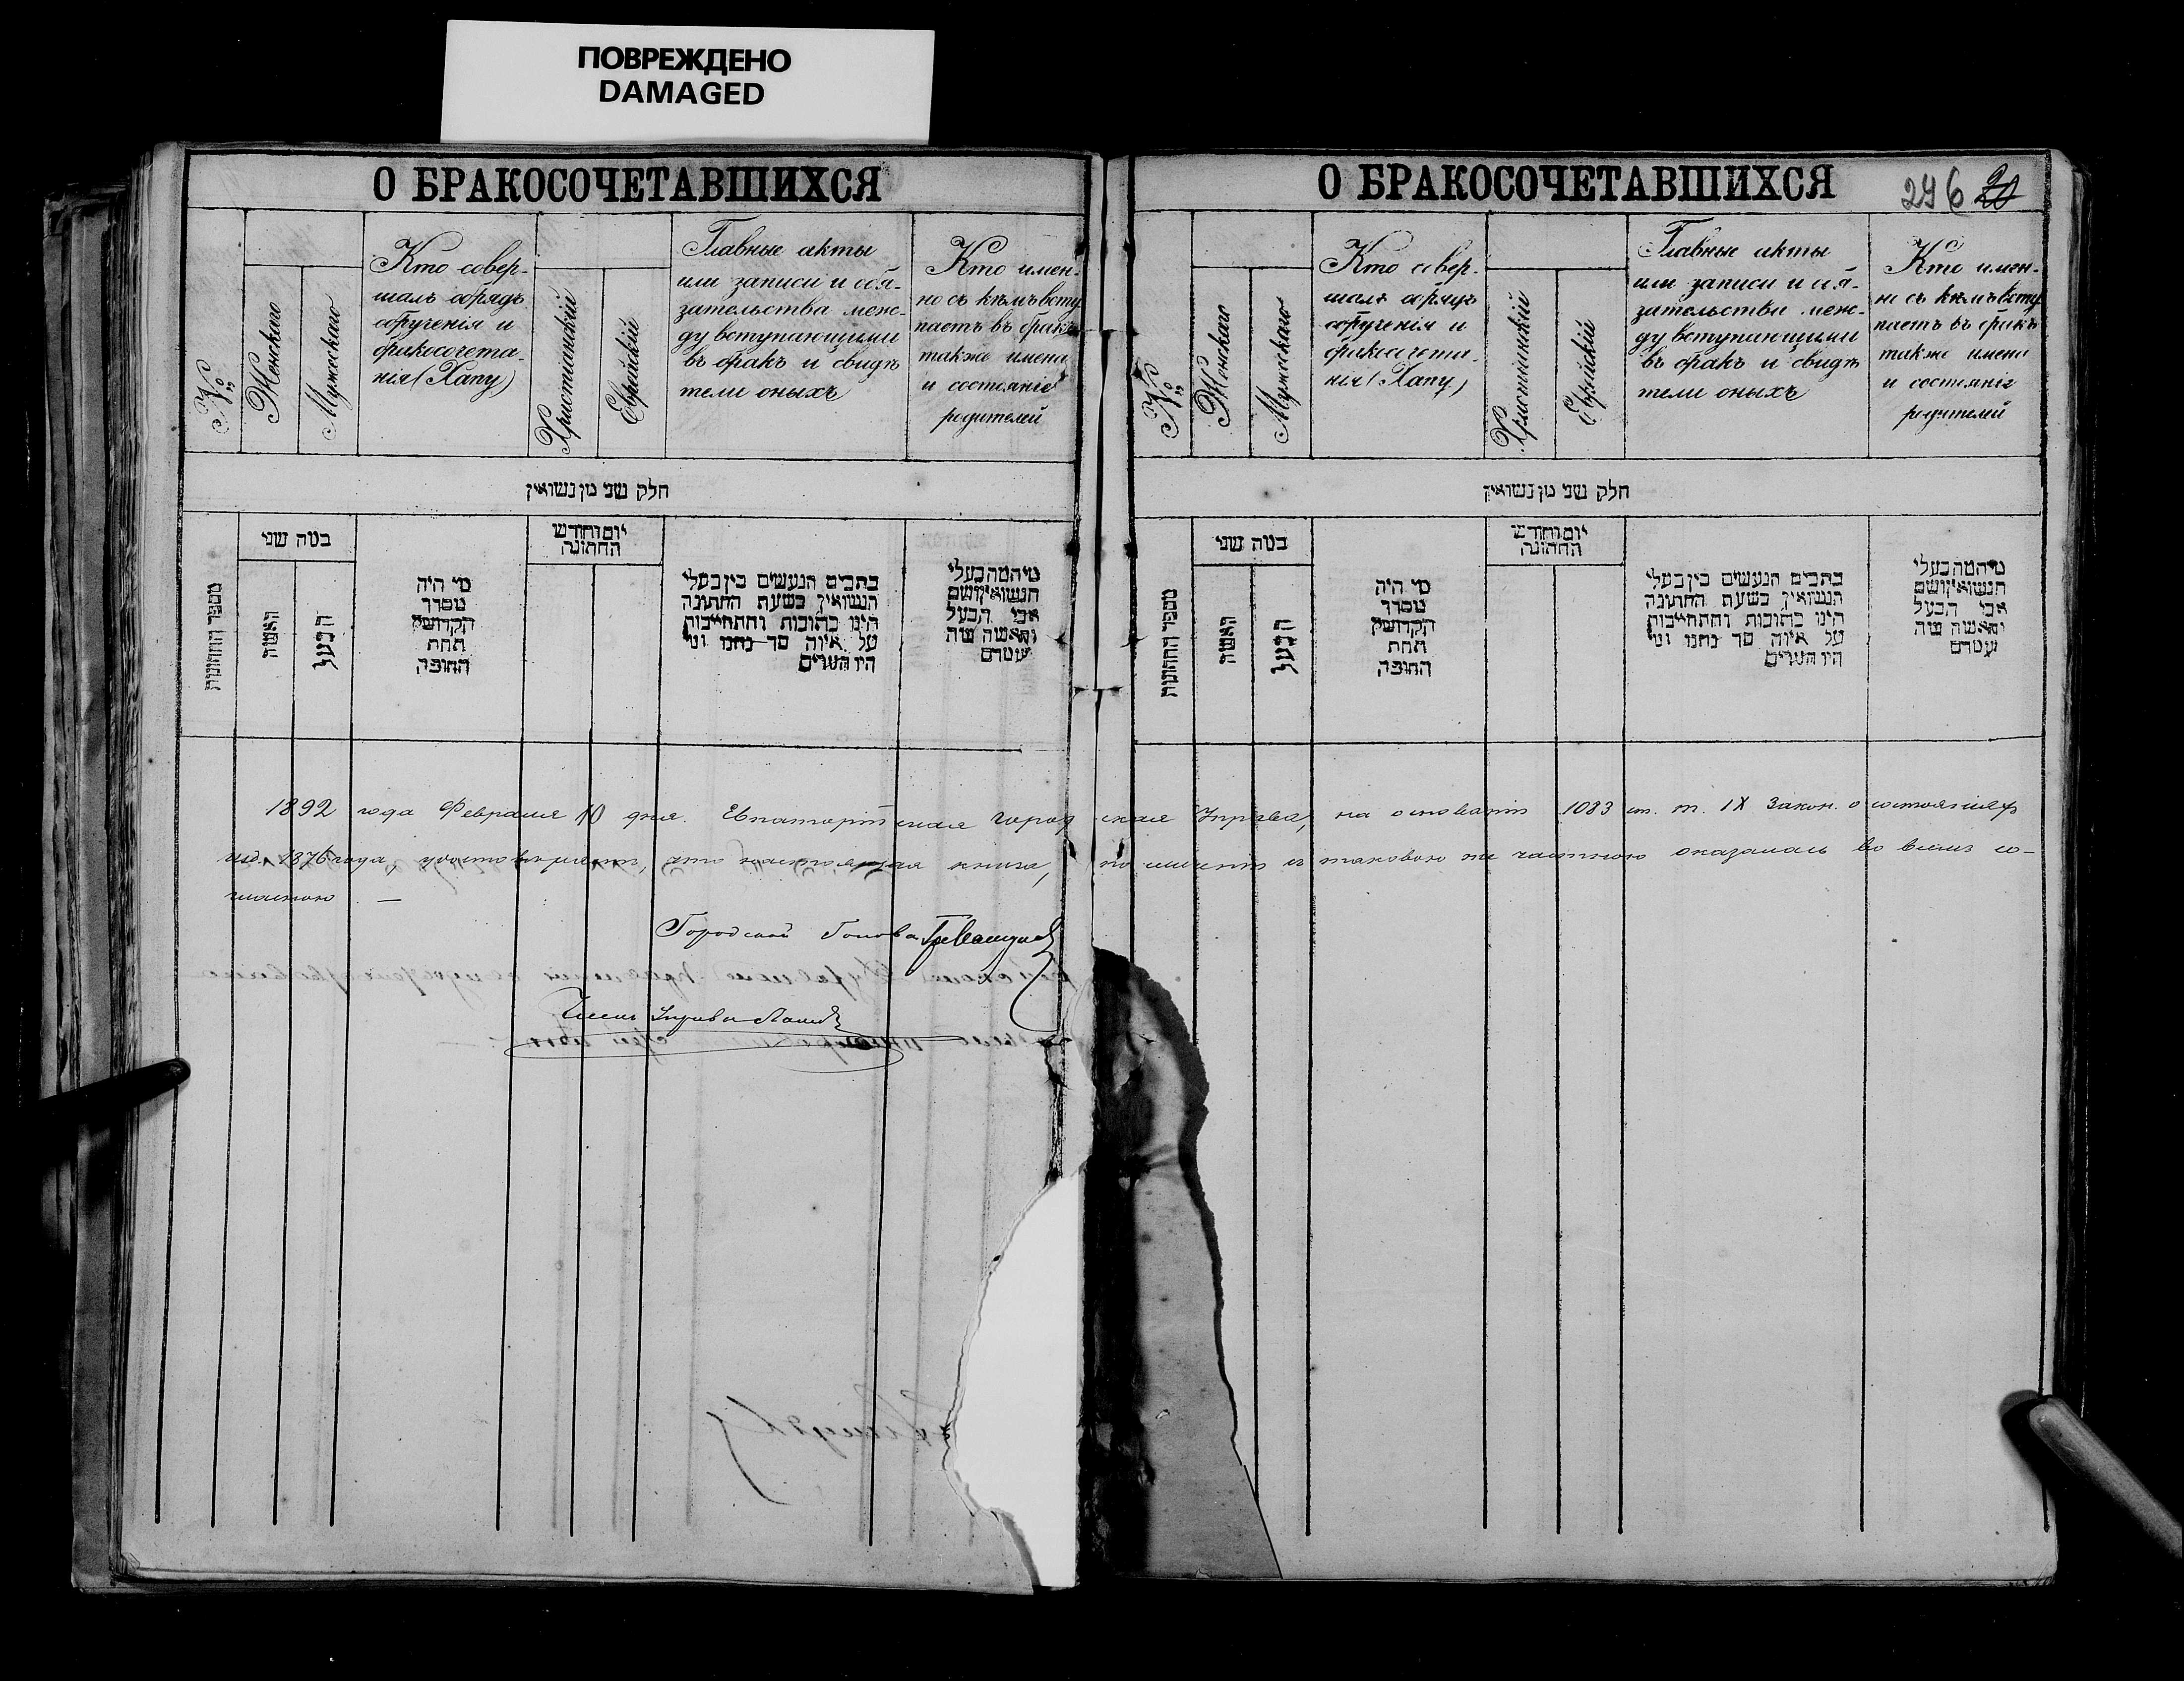 ПОВРЕЖДЕНО
DAMAGED
О БРАКОСОЧЕТАВШИХСЯ
№
Женскаго
Мужескаго
Кто совер-
шалъ обрядъ
обрученія и
бракосочета-
нія (Хапу)
Христіанскій
Еврейскій
Главные акты
или записи и обя-
зательства меж-
ду вступающими
въ бракъ и свидѣ
тели оныхъ
Кто имен-
но съ кѣмъ всту
паетъ въ бракъ
также имена
и состояніе
родителей
חלק שני מן נשואין
מספר החתונות
במה שני
האשה
הבעל
מי היה
מסדר
הקדושין
תחת
החופה
יום וחודש
החתונה
כתבים הנעשים בין בעלי
הנשואין בשעת החתונה
היינו כתובות והתחייבות
על איזה סך נתנו ומי
היו העדים
מי המה בעלי
הנשואין ושם
אבי הבעל
והאשה ומה
מעמדם
1892 года Февраля 10 дня. Евпаторійская Город
изд. 1876 года, удостовѣряетъ, что настоящая книга,
гласною —
Городской Голова
Членъ Управы
О БРАКОСОЧЕТАВШИХСЯ
296 20
№
Женскаго
Мужескаго
Кто совер-
шалъ обрядъ
обрученія и
бракосочета-
нія (Хапу)
Христіанскій
Еврейскій
Главные акты
или записи и обя-
зательства меж-
ду вступающими
въ бракъ и свидѣ
тели оныхъ
Кто имен-
но съ кѣмъ всту
паетъ въ бракъ
также имена
и состояніе
родителей
חלק שני מן נשואין
מספר החתונות
במה שני
האשה
הבעל
מי היה
מסדר
הקדושין
תחת
החופה
יום וחודש
החתונה
כתבים הנעשים בין בעלי
הנשואין בשעת החתונה
היינו כתובות והתחייבות
על איזה סך נתנו ומי
היו העדים
מי המה בעלי
הנשואין ושם
אבי הבעל
והאשה ומה
מעמדם
ская Управа, на основаніи 1083 ст. т. IX Закон. о состояніяхъ
по сличеніи съ таковою же частною оказалась во всемъ со-